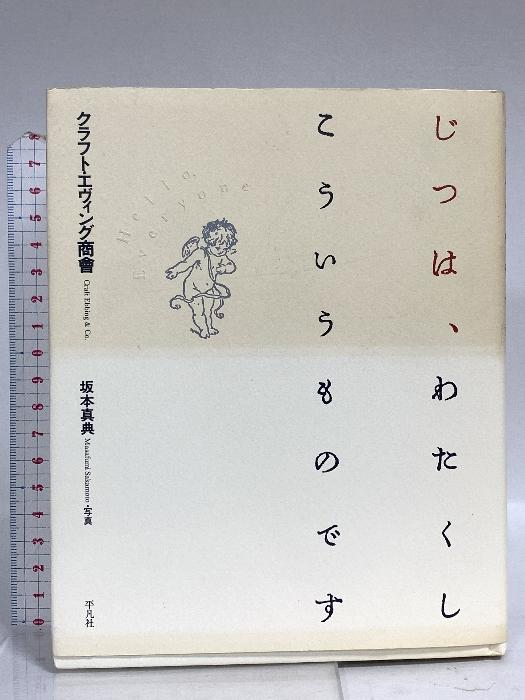 じつは、わたくし
こういうものです
Hello,
Everyone
クラフト・エヴィング商會
Craft Ebbing & Co.
坂本真典
Masafumi Sakamoto・写真
平凡社
8 7 6 5 4 3 2 1 0 9 8 7 6 5 4 3 2 1 0